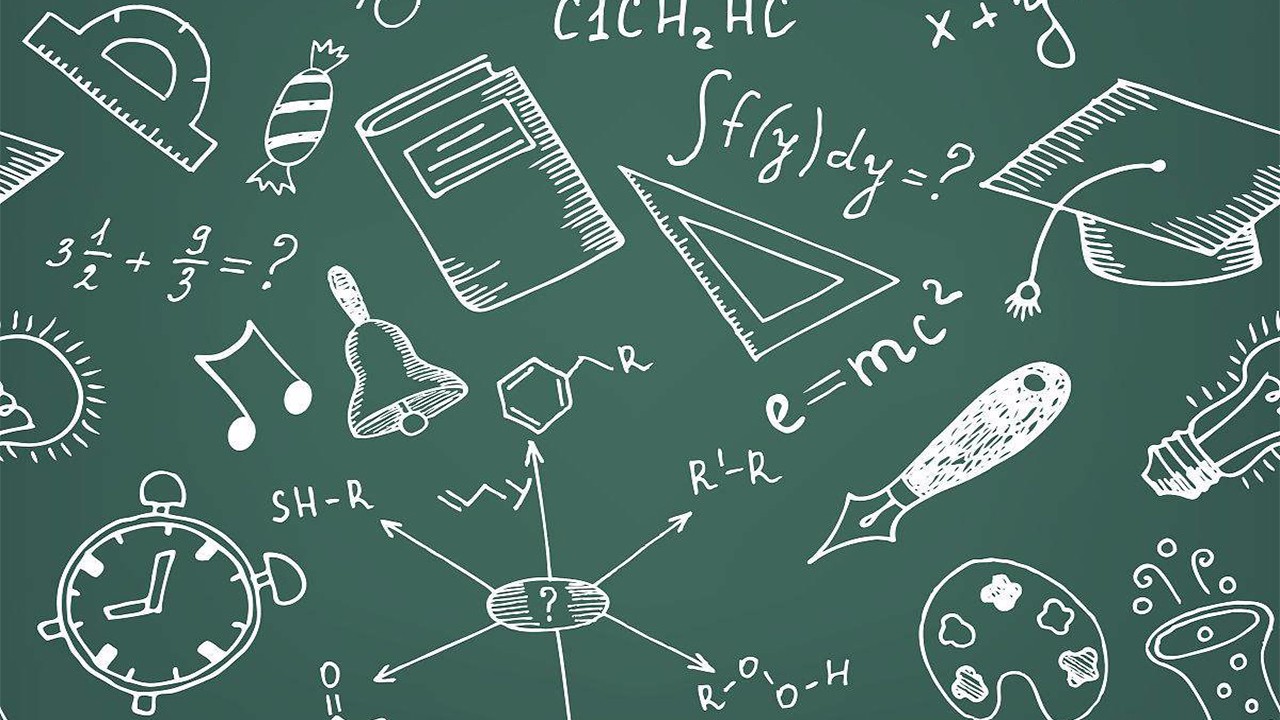 C1CH₂HC
x + y
∫f(y)dy=?
3 1/2 + 9/3 = ?
e=mc²
R
SH-R
R'-R
?
O
R-O-O-H